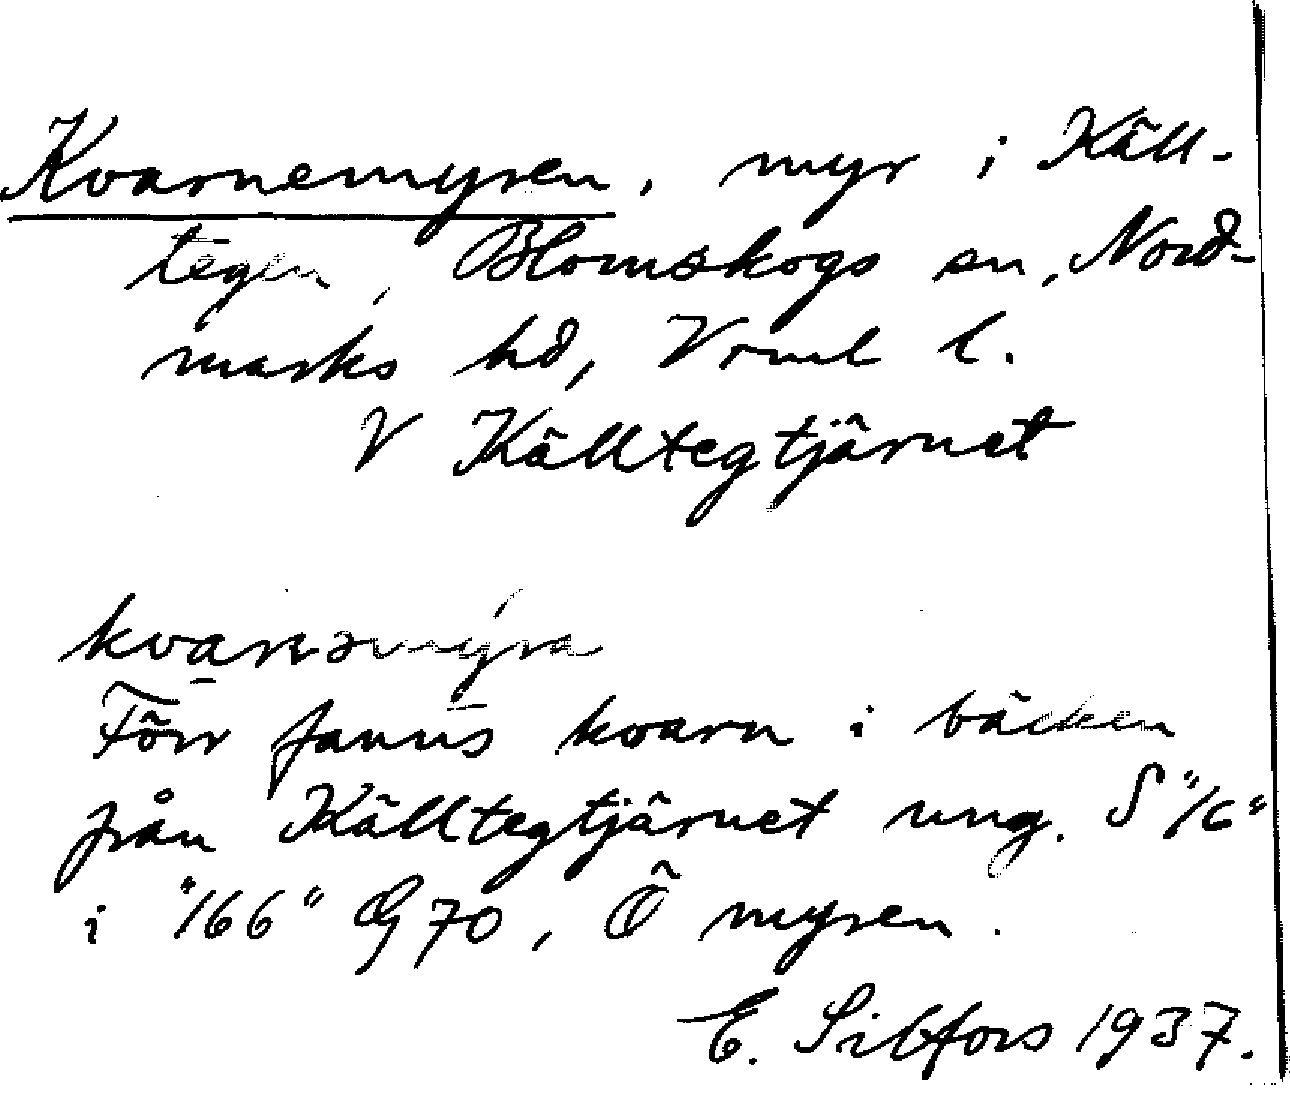 Kvarnemyren, myr i Käll-
tegen, Blomskogs sn, Nord-
marks hd, Vrml l.
V Källtegtjärnet
kvarnəmýra
Förr fanns kvarn i bäcken
från Källtegtjärnet ung. S "/6"
i "166" G 70, Ö myren.
E. Silfors 1937.